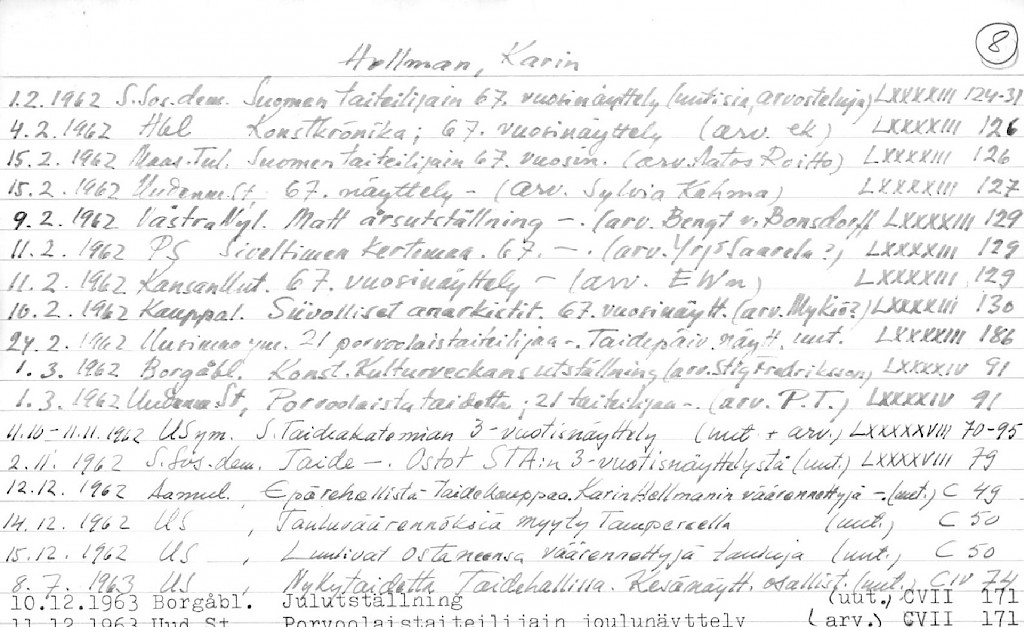 8
Hellman, Karin
1.2. 1962 S.Sos.dem. Suomen taiteilijain 67. vuosinäyttely (uutisia, arvosteluja) LXXXXIII 124-31
4.2. 1962 Hbl Konstkrönika; 67. vuosinäyttely (arv. ek) LXXXXIII 126
15.2. 1962 Maas.Tul. Suomen taiteilijain 67. vuosin. (arv. Aatos Roitto) LXXXXIII 126
15.2. 1962 Uudenm.St, 67. näyttely - (arv. Sylvia Kahma) LXXXXIII 127
9.2. 1962 Västra Nyl. Matt årsutställning -. (arv. Bengt v. Bonsdorff LXXXXIII 129
11.2. 1962 PS Siveltimen kertomaa. 67. -. (arv. Yrjö Saarela?) LXXXXIII 129
11.2. 1962 Kansan Uut. 67. vuosinäyttely - (arv. EWn) LXXXXIII 129
16.2. 1962 Kauppal. Siivolliset anarkistit. 67. vuosinäytt. (arv. Mykiö?) LXXXXIII 130
24.2. 1962 Uusimaa ym. 21 porvoolaistaiteilijaa -. Taidepäiv. näytt. uut. LXXXXIII 186
1.3. 1962 Borgåbl. Konst. Kulturveckans utställning (arv. Stig Fredriksson) LXXXXIV 91
1.3. 1962 Uudenm St, Porvoolaista taidetta; 21 taiteilijaa -. (arv. P.T.) LXXXXIV 91
11.10 - 11.11. 1962 US ym. S. Taideakatemian 3-vuotisnäyttely (uut. + arv.) LXXXXVIII 70-95
2.11. 1962 S.Sos.dem. Taide -. Ostot STA:n 3-vuotisnäyttelystä (uut.) LXXXXVIII 79
12.12. 1962 Aamul. Epärehellistä taidekauppaa. Karin Hellmanin väärennettyjä -. (uut.) C 49
14.12. 1962 US , Tauluväärennöksiä myyty Tampereella (uut.) C 50
15.12. 1962 US , Luulivat ostaneensa väärennettyjä tauluja (uut.) C 50
8.7. 1963 US, Nykytaidetta Taidehallissa. Kesänäytt. osallist. (uut.) CIV 74
10.12.1963 Borgåbl. Julutställning (uut.) CVII 171
11.12.1963 Uud.St. Porvoolaistaiteilijain joulunäyttely (arv.) CVII 171